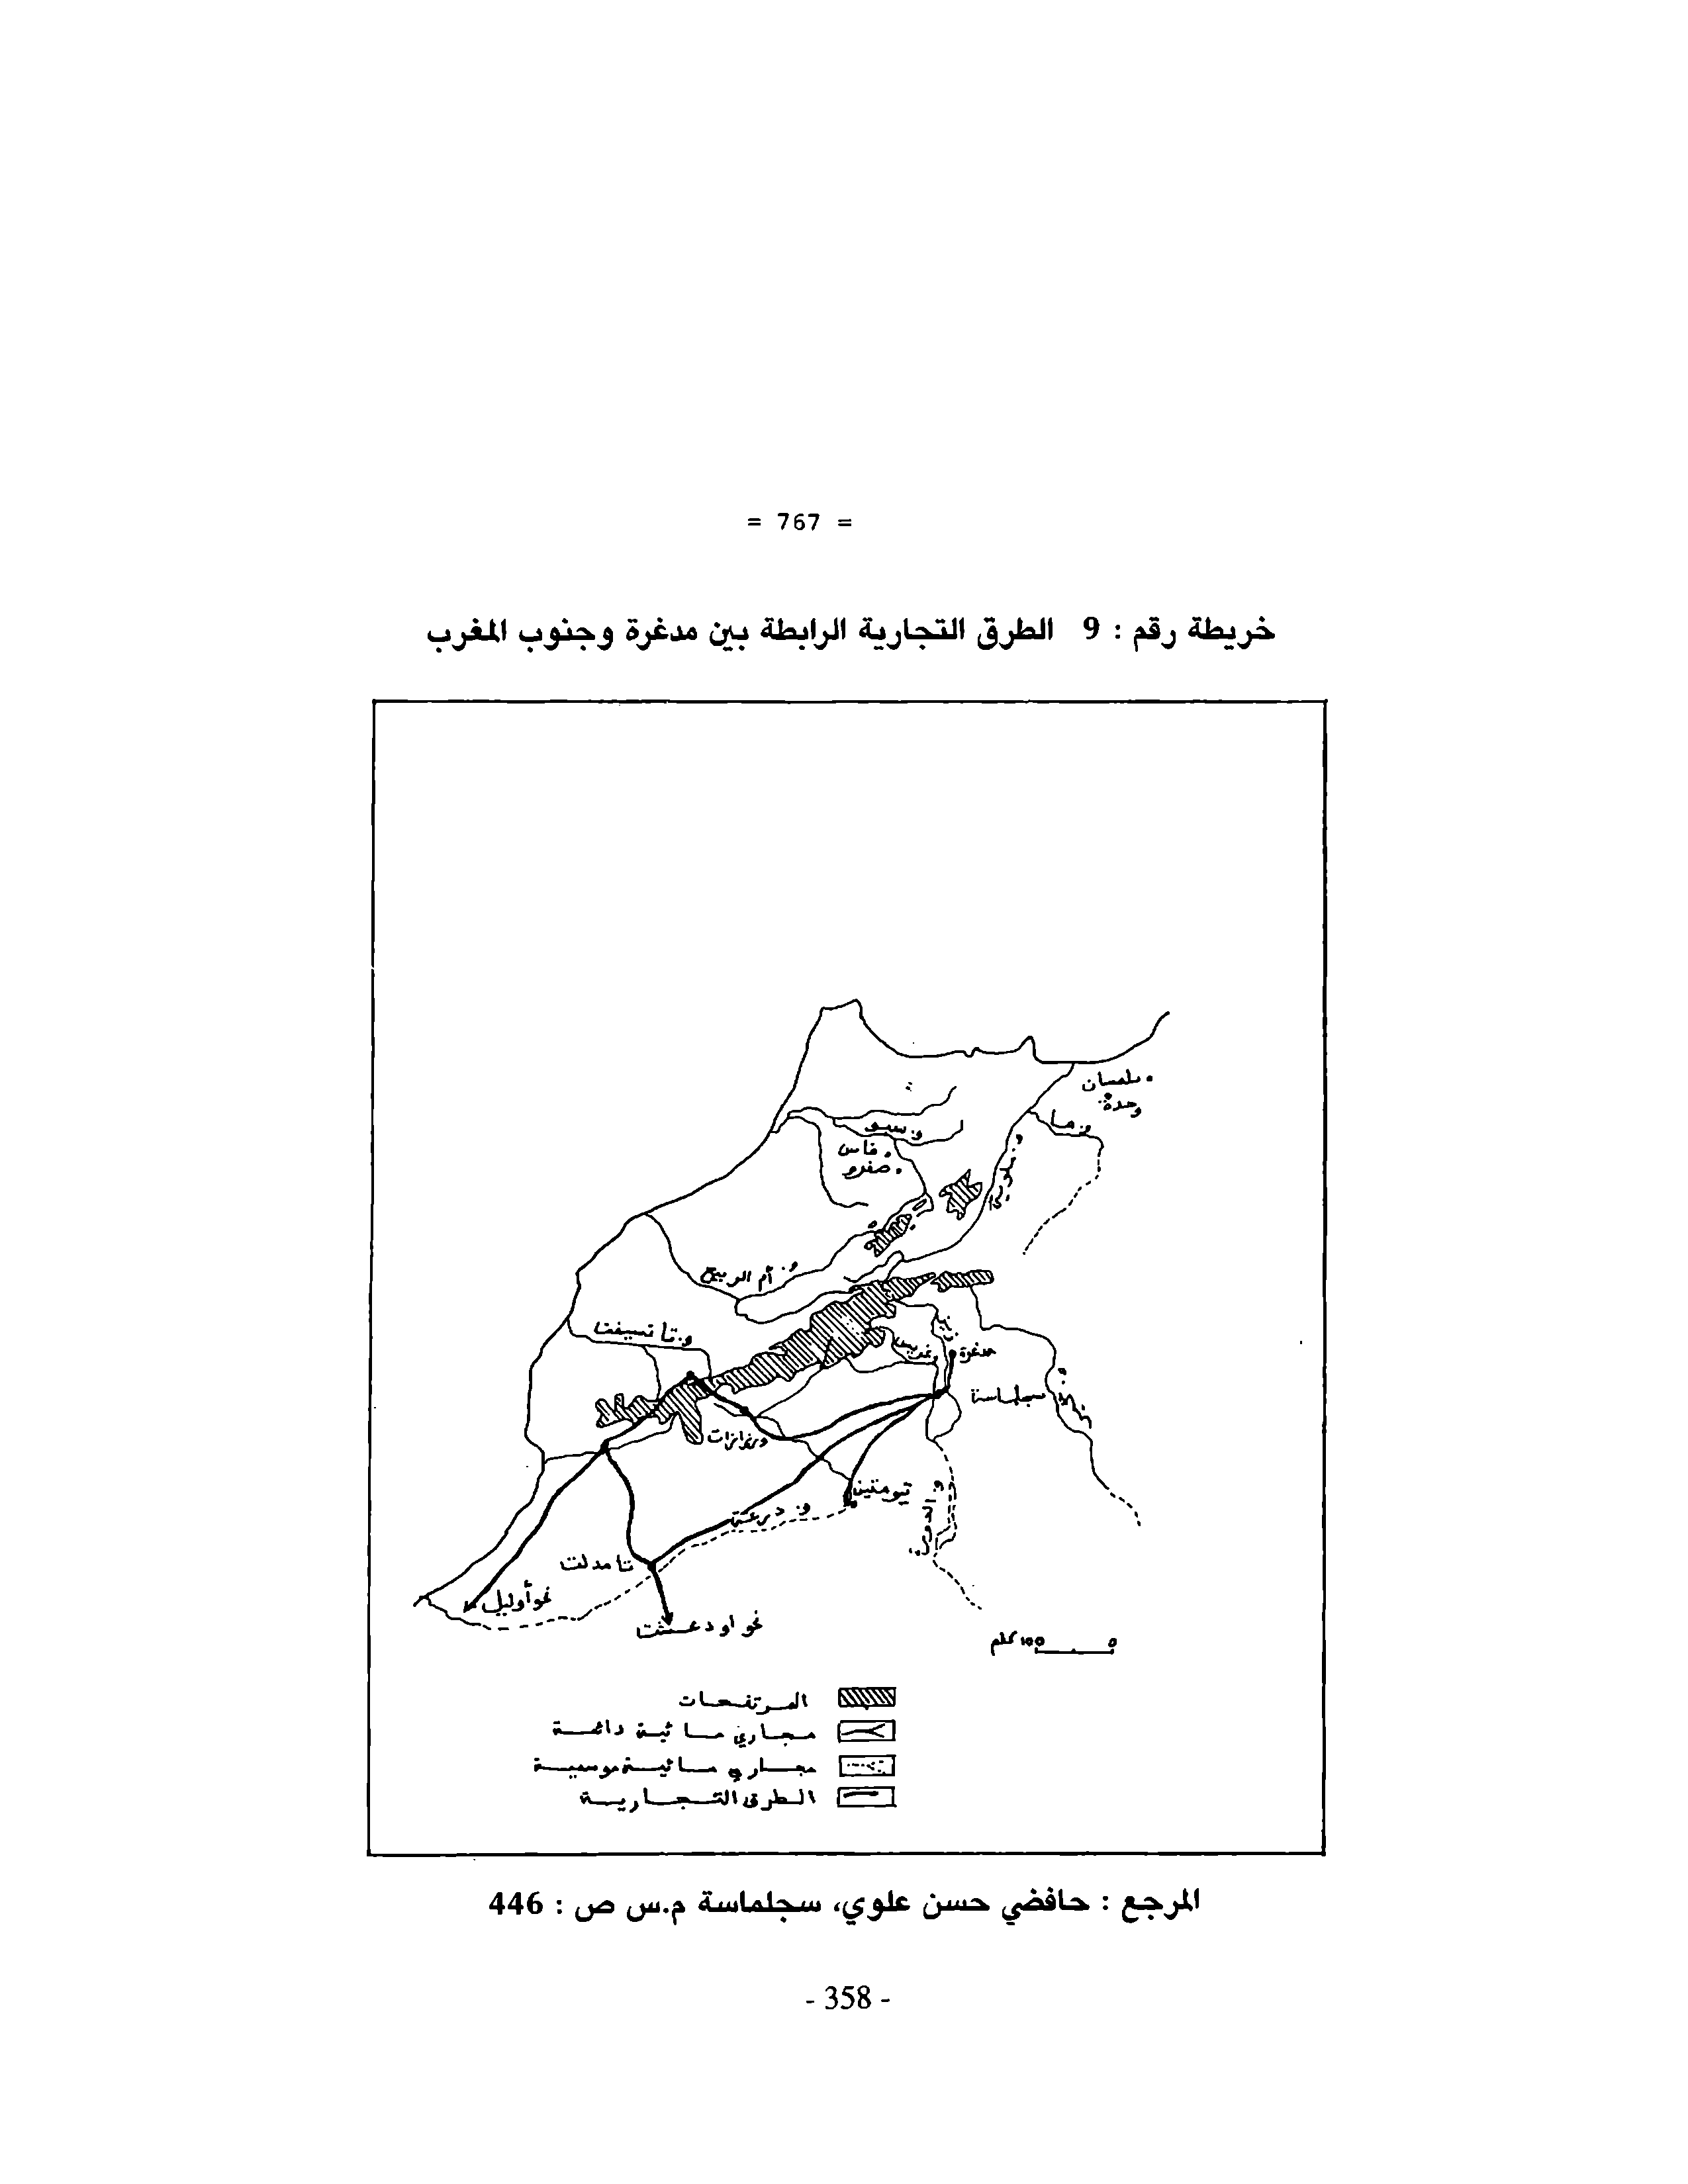 = 767 =
خريطة رقم : 9 الطرق التجارية الرابطة بين مدغرة وجنوب المغرب
تلمسان
وجدة
و. زا
و. سبو
فاس
صفرو
و. ملوية
و. أم الربيع
و. تانسيفت
و. زيز
و. غريس
مدغرة
سجلماسة
و. درعة
تيومتين
و. الدورة
تامدلت
نحو أوليل
نحو اودغشت
0 100 كلم
المرتفعات
مجاري مائية دائمة
مجاري مائية موسمية
الطرق التجارية
المرجع : حافضي حسن علوي، سجلماسة م.س ص : 446
- 358 -